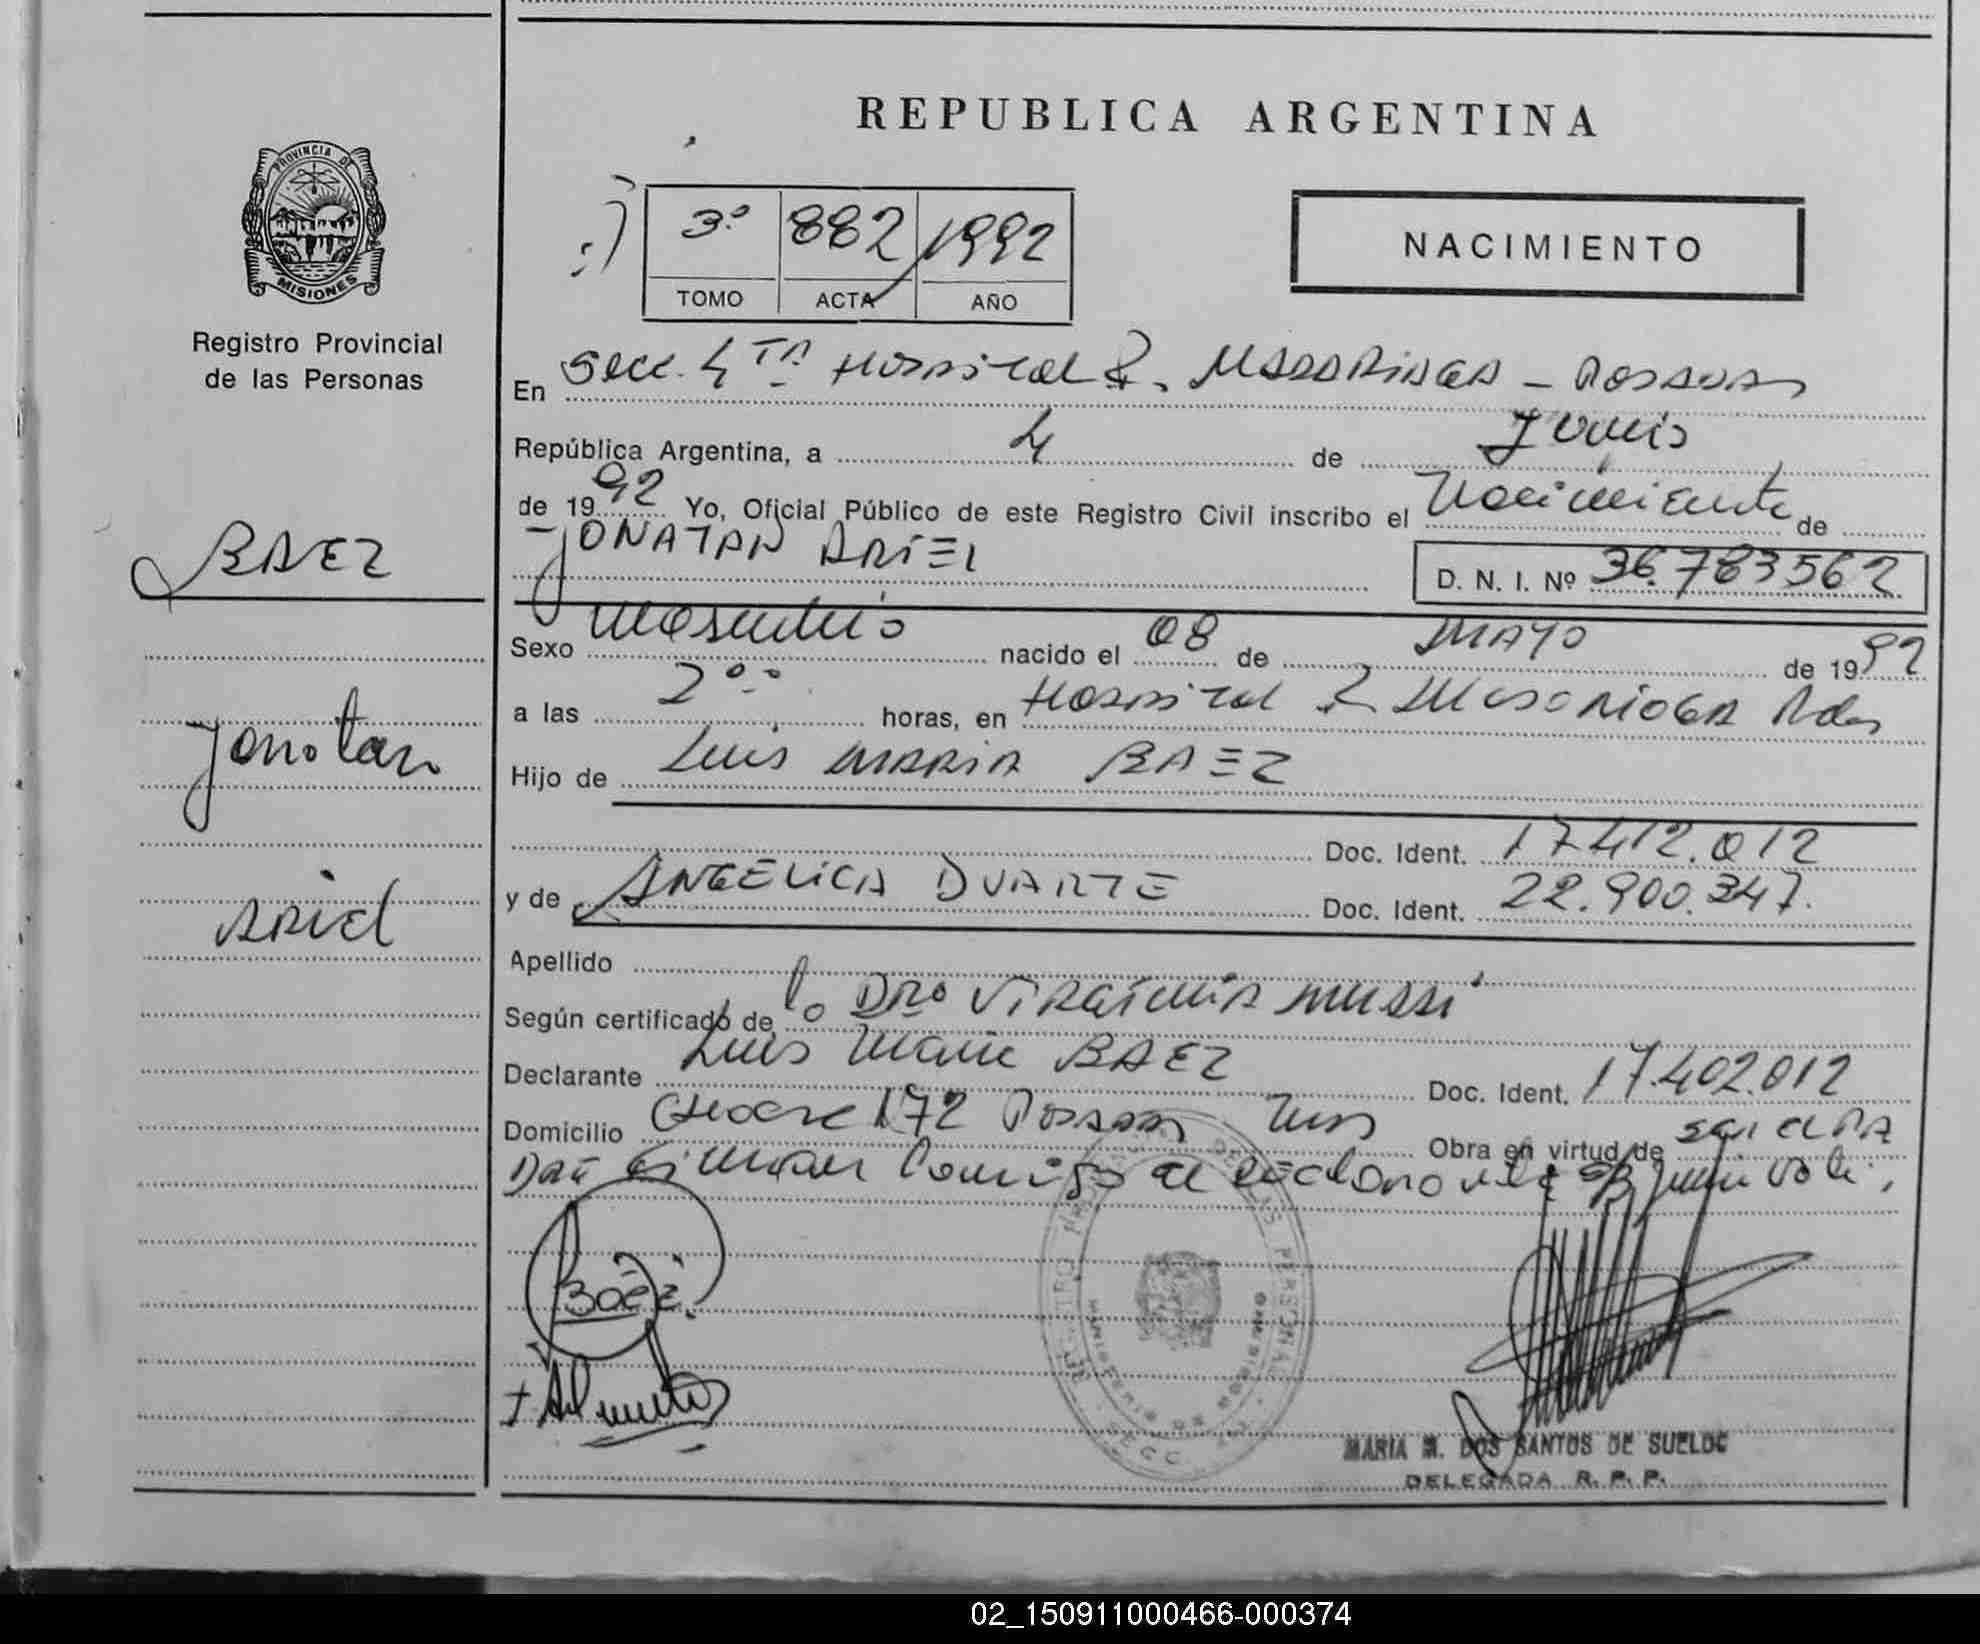 REPUBLICA ARGENTINA
PROVINCIA DE
MISIONES
Registro Provincial
de las Personas
3º 882 1992
TOMO ACTA AÑO
NACIMIENTO
BAEZ
Jonatan
Ariel
En Secc. 4TA Hospital R. MADARIAGA - Posadas
República Argentina, a 4 de Junio
de 1992 Yo, Oficial Público de este Registro Civil inscribo el Nacimiento de
- JONATAN ARIEL D. N. I. Nº 36.783562
Sexo Masculino nacido el 08 de MAYO de 1992
a las 2 horas, en Hospital R MADARIAGA Pdas
Hijo de Luis MARIA BAEZ
Doc. Ident. 17.412.012
y de ANGELICA DUARTE Doc. Ident. 22.900.347.
Apellido
Según certificado de la Dra VIRGINIA MUSSI
Declarante Luis Maria BAEZ Doc. Ident. 17.402.012
Domicilio 172 Posadas Mns Obra en virtud de ser el PA
DRE Firman Conmigo el declarante
Baez
MARIA M. DOS SANTOS DE SUELDO
DELEGADA R. P. P.
02_150911000466-000374